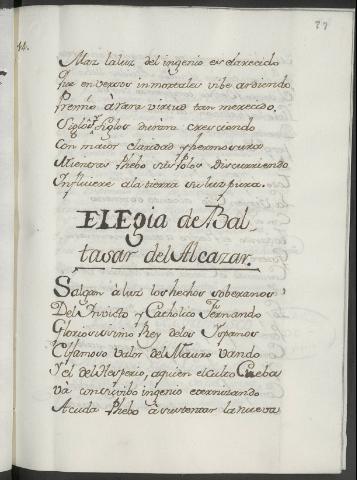 44.
Mas la luz del ingenio esclarecido
Que en versos inmortales vibe ardiendo
Premio a rara virtud tan merecido.
Siglos, y siglos durara cresciendo
Con maior claridad y hermosura
Mientras Phebo sus polos discurriendo
Influiere a la tierra su luz pura.
ELEgia de Bal-
tasar del Alcazar.
Salgan à luz los hechos soberanos
Del Invicto y Catholico Fernando
Gloriosissimo Rey de los Ispanos
El famoso valor del Mauro vando
Y el del Hesperio, a quien el culto Cueba
và con su vibo ingenio eternizando
Acuda Phebo à sustentar la nueva